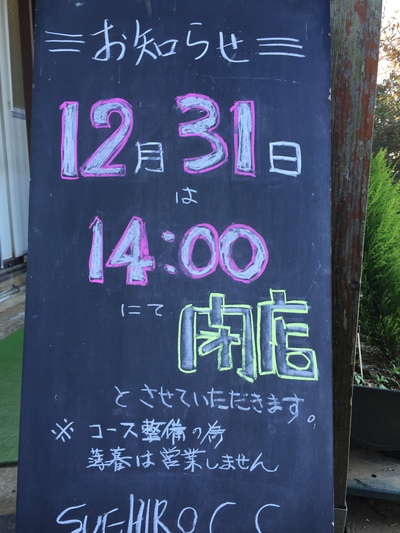 お知らせ
12月31日
は
14:00
にて
閉店
とさせていただきます。
※コース整備の為
薄暮は営業しません
SUEHIRO C C